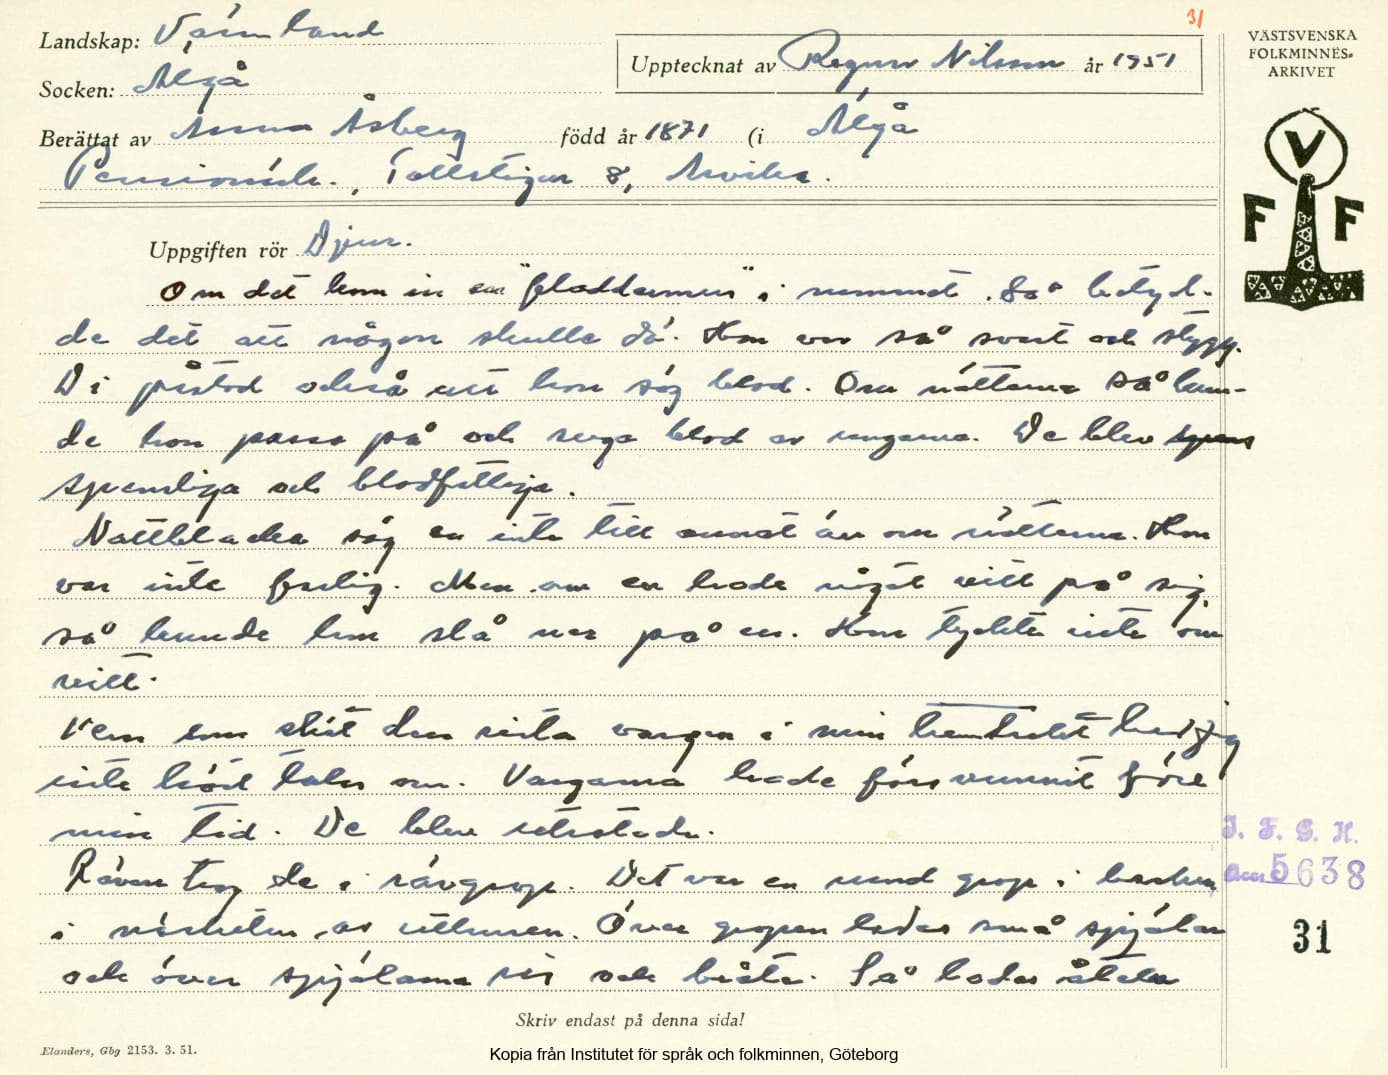 31
Landskap: Värmland
Socken: Älgå
Upptecknat av Ragnar Nilsson år 1951
Berättat av Anna Åsberg född år 1871 (i Älgå
Pensionär., Tallstigen 8, Arvika.
VÄSTSVENSKA
FOLKMINNES-
ARKIVET
V
F F
Uppgiften rör Djur.
Om det kom in en "fladdermus" i rummet. Så betyd-
de det att någon skulle dö. Hon var så svart och stygg.
Di påstod också att hon sög blod. Om nätterna så kun-
de hon passa på och suga blod av ungarna. De blev
spensliga och blodfattiga.
Nattblacka såg en inte till annat än om nätterna. Hon
var inte farlig. Men om en hade något vitt på sig,
så kunde hon slå ner på en. Hon tyckte inte om
vitt.
Vem som sköt den sista vargen i min hemtrakt har jag
inte hört talas om. Vargarna hade försvunnit före
min tid. De blev utrotade.
Räven tog de i rävgrop. Det var en rund grop i backen
i närheten av uthusen. Över gropen lades små spjälor
och över spjälarna ris och bråte. Så lades åteln
J. F. G. H.
Acc. 5638
31
Skriv endast på denna sida!
Elanders, Gbg 2153. 3. 51.
Kopia från Institutet för språk och folkminnen, Göteborg